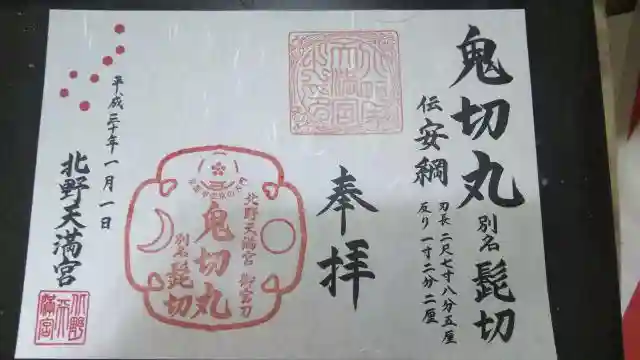 鬼切丸 別名 髭切
伝 安綱 刃長 二尺七寸八分五厘
反り 一寸二分二厘
奉拝
北野天満宮 御宝刀
鬼切丸
別名 髭切
平成三十年一月一日
北野天満宮